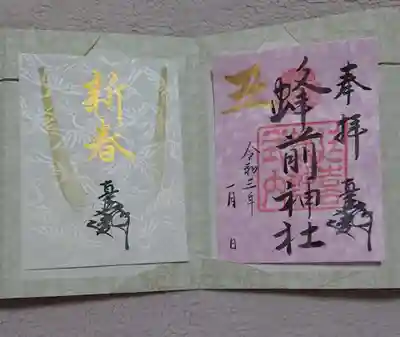 奉拝
丑
蜂前神社
令和三年
一月 日
新春